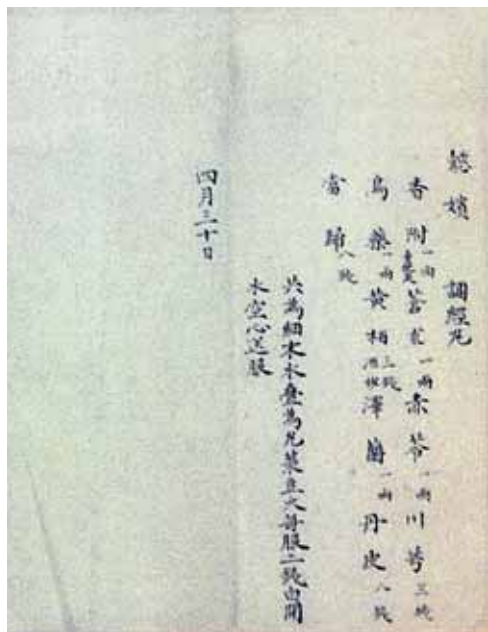 懿嬪 調經丸
香附一兩童炙蒼术一兩赤苓一兩川芎三錢
烏藥一兩黄柏三錢酒炒澤蘭一兩丹皮八錢
當歸八錢
共為細末水叠為丸菉豆大每服二錢白開
水空心送服
四月三十日